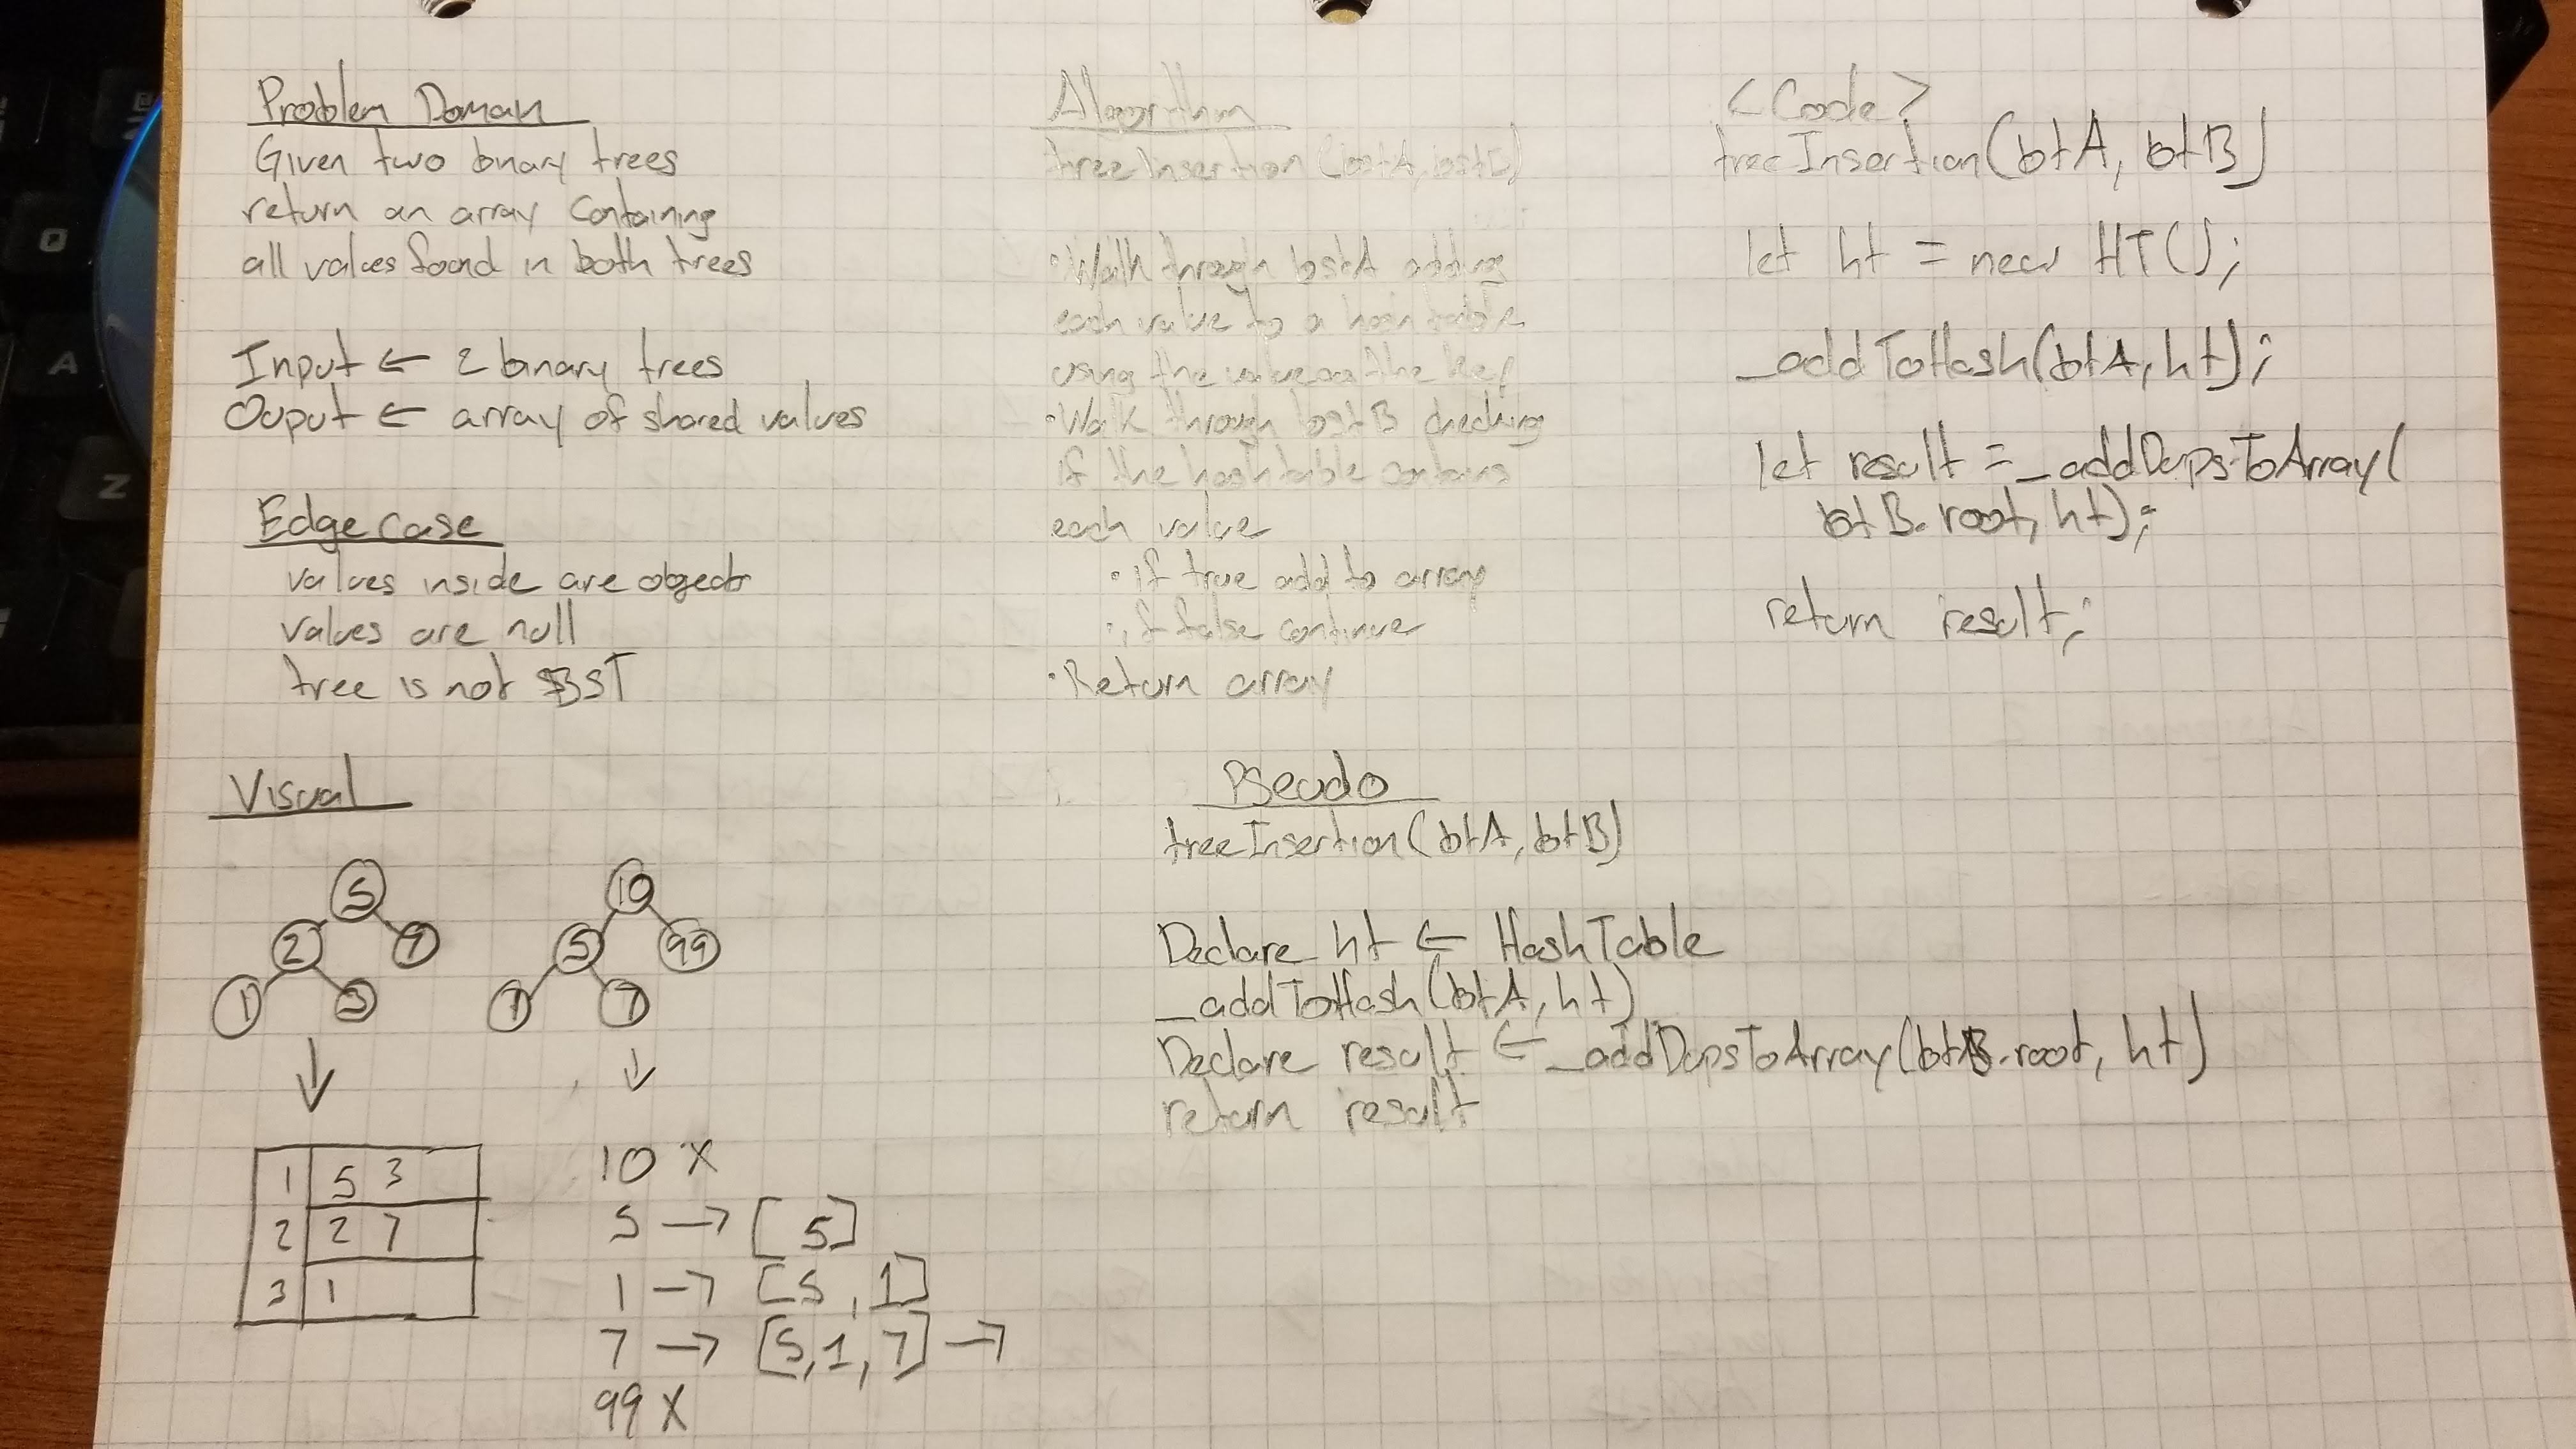 Problem Doman
Given two binary trees
return an array containing
all values found in both trees
Input ← 2 binary trees
Ouput ← array of shared values
Edge case
values inside are objects
values are null
tree is not BST
Visual
5
2
7
1
3
10
5
99
1
7
1 5 3
2 2 7
3 1
10 X
5 → [ 5]
1 → [5, 1]
7 → [5, 1, 7] →
99 X
Algorithm
treeInsertion (bstA, bstB)
• Walk through bstA adding
each value to a hashtable
using the value as the key
• Walk through bstB checking
if the hashtable contains
each value
• if true add to array
• if false continue
• Return array
Pseudo
treeInsertion(btA, btB)
Declare ht ← HashTable
_addToHash(btA, ht)
Declare result ← _addDupsToArray(btB.root, ht)
return result
<Code>
treeInsertion(btA, btB)
let ht = new HT();
_addToHash(btA, ht);
let result = _addDupsToArray(
btB.root, ht);
return result;
O
A
Z